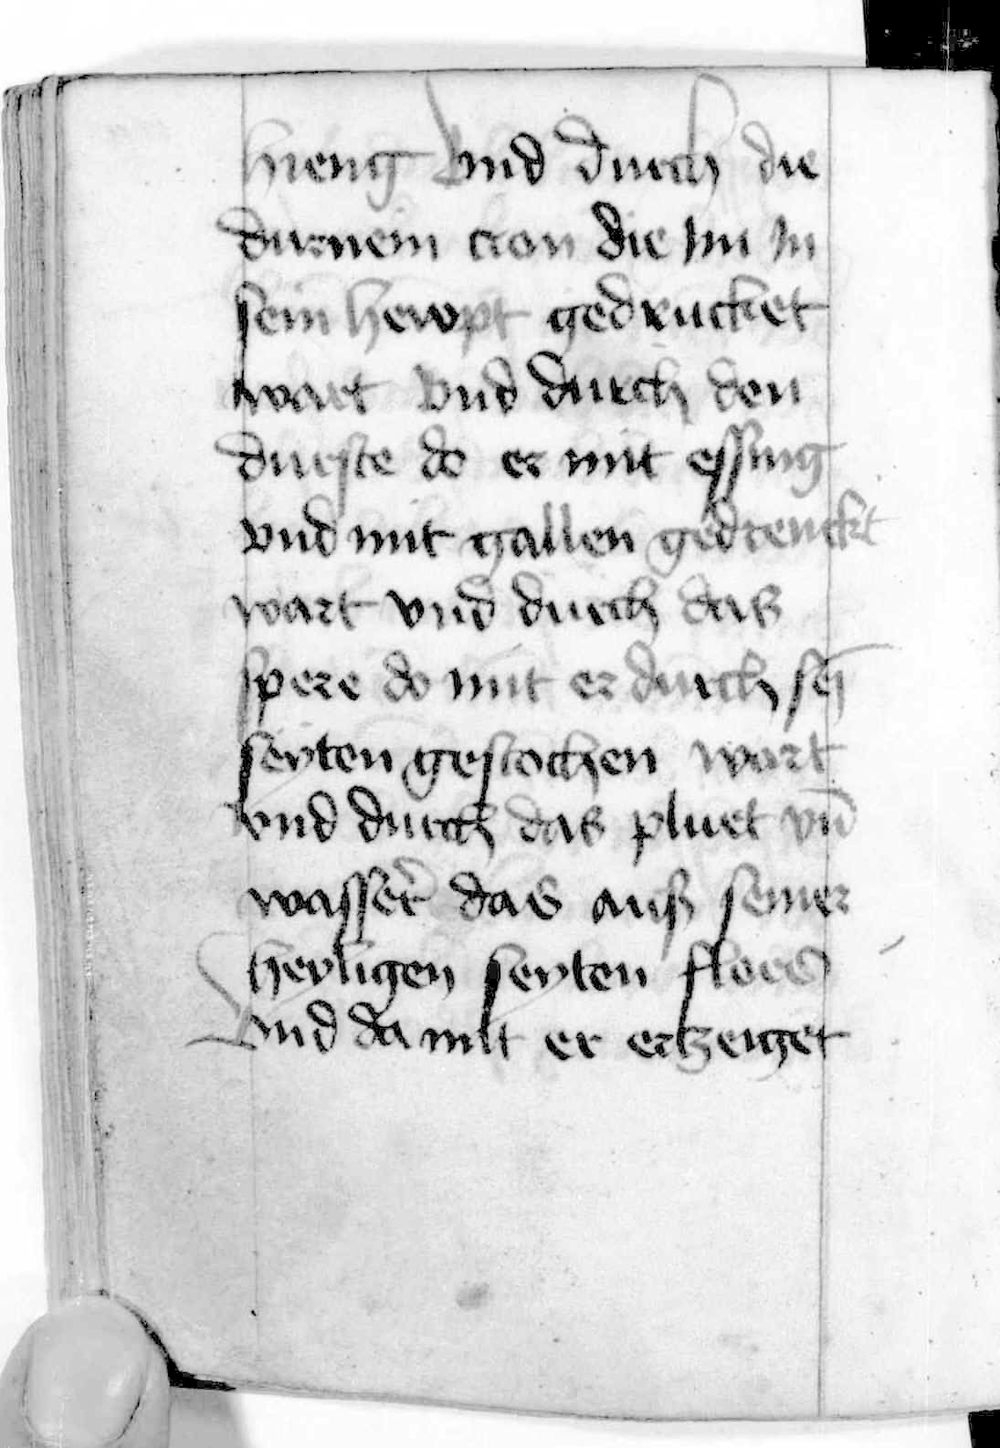 hieng Vnd durch die
durnein cron die Im In
sein hewpt gedrucket
wart Vnd durch den
durste do er mit essing
vnd mit gallen gedrenckt
wart vnd durch das
spere do mit er durch sei̅
seyten gestochen wart
vnd durch das pluet vn̅
wasser das auß seiner
heyligen seyten floes
Vnd da mit er ertzeiget